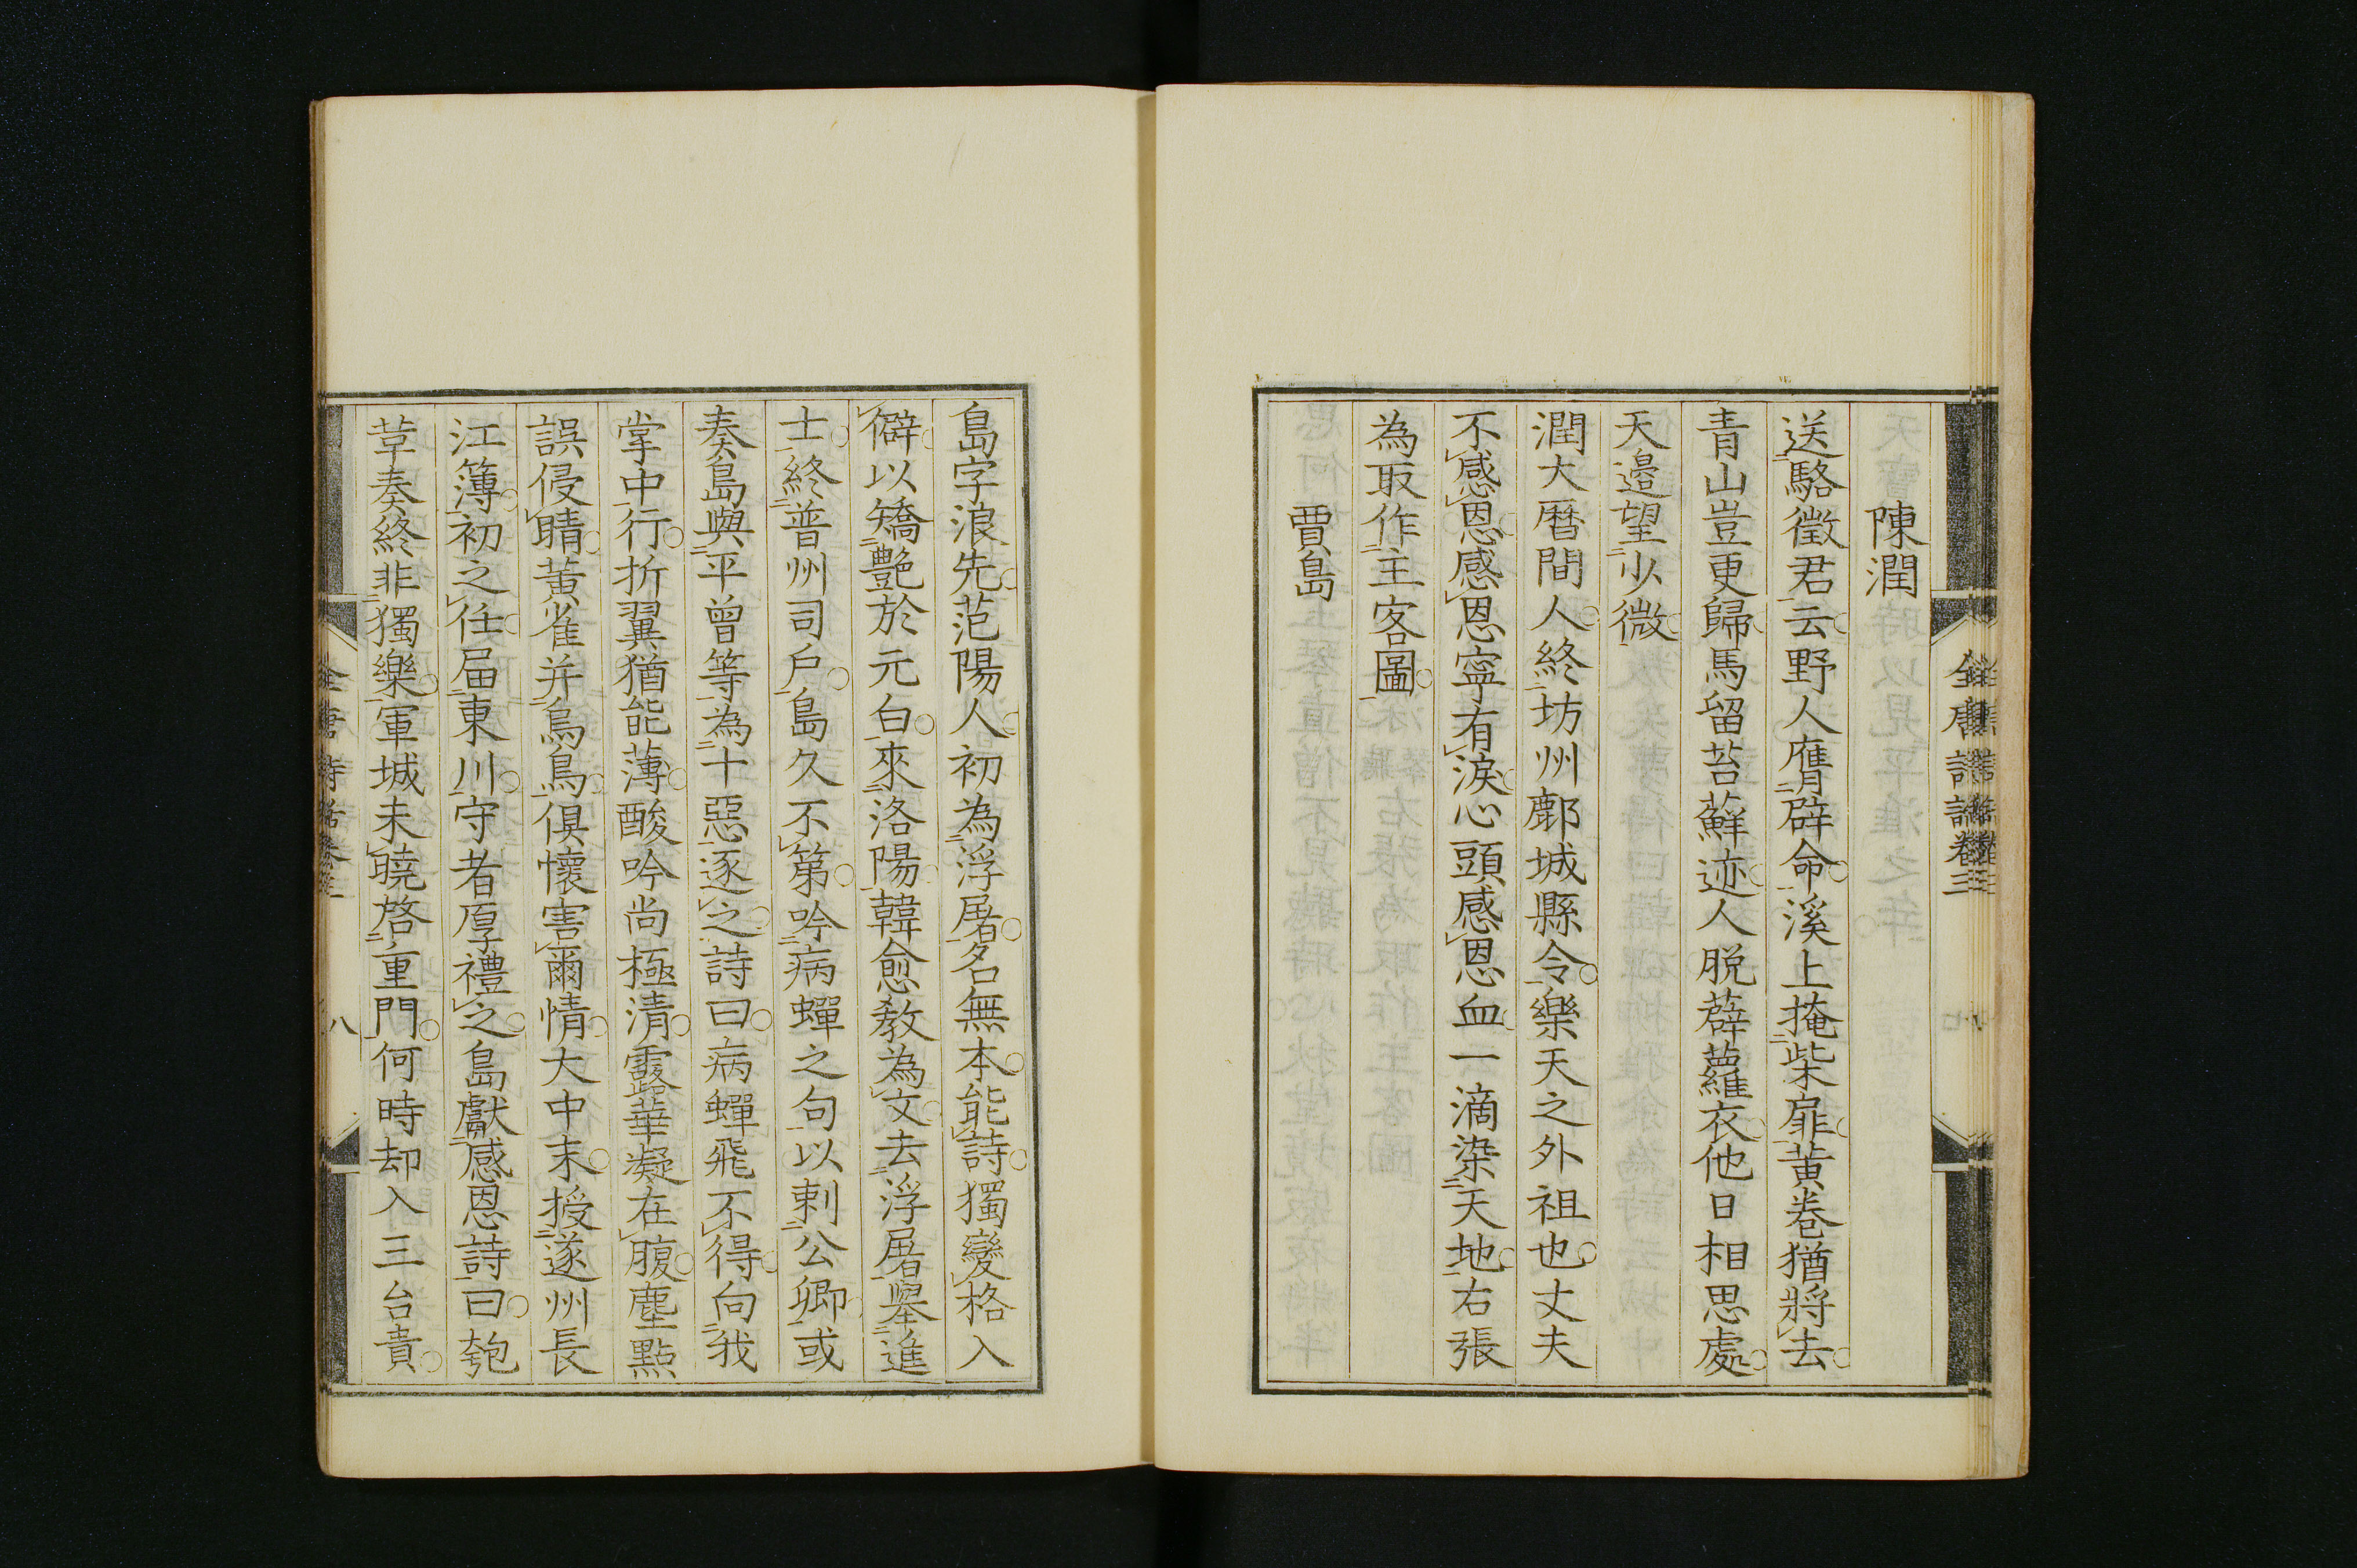 陳潤
送駱徵君云野人膺辟命溪上掩柴扉黃卷猶將去
青山豈更歸馬留苔蘚迹人脫薜蘿衣他日相思處
天邉望少微
潤大曆間人終坊州鄜城縣令樂天之外祖也丈夫
不感恩感恩寧有淚心頭感恩血一滴染天地右張
為取作主客圖
賈島
島字浪先范陽人初為浮屠名無本能詩獨變格入
僻以矯艶於元白來洛陽韓愈敎為文去浮屠舉進
士終普州司戶島久不第吟病蟬之句以刺公卿或
奏島與平曾等為十惡逐之詩曰病蟬飛不得向我
掌中行折翼猶能薄酸吟尚極清露華凝在腹塵點
誤侵睛黃雀并烏鳥俱懷害爾情大中末授遂州長
江簿初之任届東川守者厚禮之島獻感恩詩曰匏
革奏終非獨樂軍城未曉啓重門何時却入三台貴
全唐詩話卷三
八